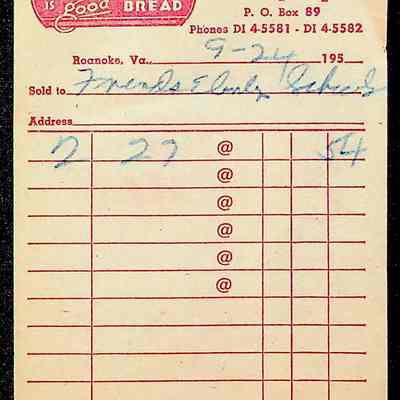 IS good BREAD
P. O. Box 89
Phones DI 4-5581 - DI 4-5582
Roanoke, Va., 9-24 195
Sold to Friends School
Address
2 27 @ 54
@
@
@
@
@